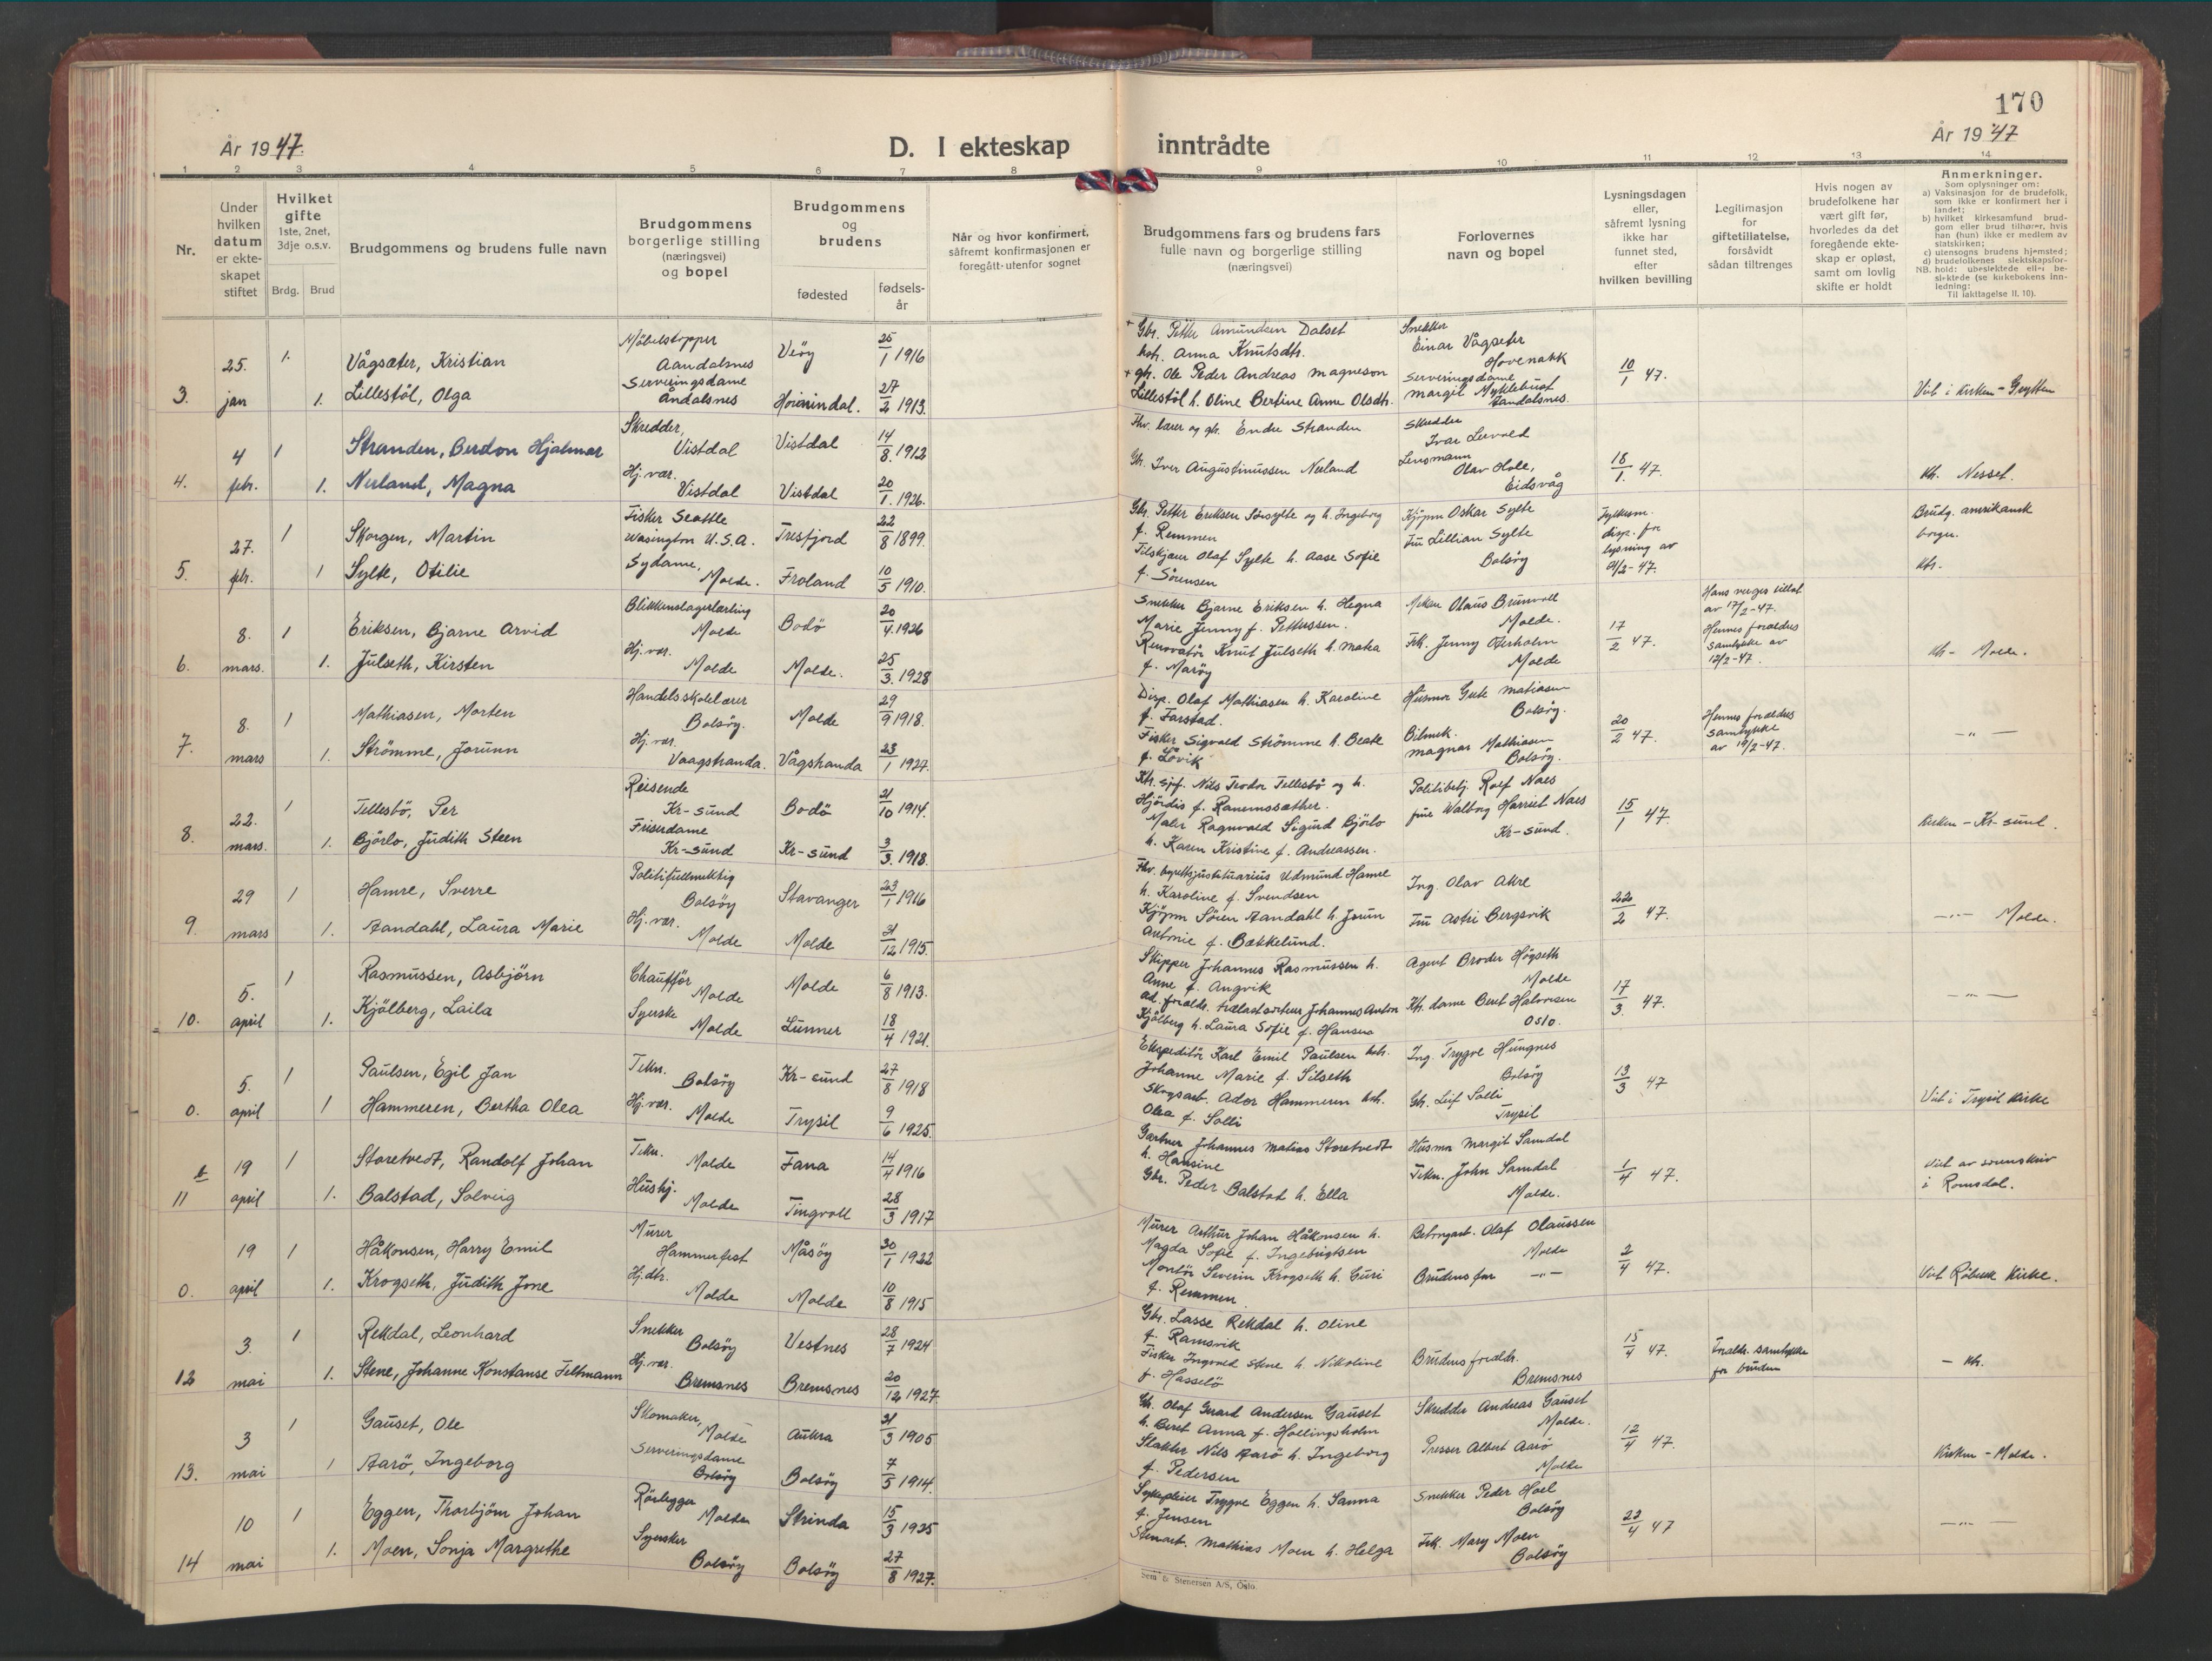 170
År 1947.
D. I ekteskap inntrådte
År 1947
1 2 3 4 5 6 7 8 9 10 11 12 13 14
Nr.
Under hvilken datum er ekteskapet stiftet
Hvilket gifte 1ste, 2net, 3dje o.s.v.
Brdg. Brud
Brudgommens og brudens fulle navn
Brudgommens borgerlige stilling (næringsvei) og bopel
Brudgommens og brudens
fødested
fødsels-år
Når og hvor konfirmert, såfremt konfirmasjonen er foregått utenfor sognet
Brudgommens fars og brudens fars fulle navn og borgerlige stilling (næringsvei)
Forlovernes navn og bopel
Lysningsdagen eller, såfremt lysning ikke har funnet sted, efter hvilken bevilling
Legitimasjon for giftetillatelse, forsåvidt sådan tiltrenges
Hvis nogen av brudefolkene har vært gift før, hvorledes da det foregående ekteskap er opløst, samt om lovlig skifte er holdt
Anmerkninger.
Som oplysninger om:
a) Vaksinasjon for de brudefolk, som ikke er konfirmert her i landet;
b) hvilket kirkesamfund brudgom eller brud tilhører, hvis han (hun) ikke er medlem av statskirken;
c) utensogns brudens hjemsted;
d) brudefolkenes slektskapsforhold: ubeslektede eller beslektede (se kirkebokens innledning:
NB. Til iakttagelse II, 10).
3. 25. jan
1. Vågsæter, Kristian Møbelstopper Aandalsnes Veøy 25/1 1916
1. Lillestøl, Olga Serveringsdame Åndalsnes 27/2 1913.
+ Gbr. Petter Amundsen Dalset
hst. Anna Knutsdtr.
+ gbr. Ole Peder Andreas Magneson
Lillestøl h. Oline Bertine Anne Olsdtr.
Snekker Einar Vågseter Hovenakk
Serveringsdame Margit Myklebust Aandalsnes.
10/1 47.
Viet i kirken - Grytten
4. 4 febr.
1 Stranden, Berdon Hjalmar Skredder, Vistdal Vistdal 14/8. 1912
1. Nerland, Magna Hj. vær. Vistdal Vistdal 20/1. 1926.
Fhv. lærer og gbr. Endre Stranden
Gbr. Iver Augustinussen Nerland
Skredder Ivar Lervold
Lensmann Olav Hole, Eidsvåg
18/1. 47.
kk. Nesset.
5. 27. febr.
1 Skorgen, Martin Fisker Seattle Wasington U.S.A. Tresfjord 22/8 1899.
1 Sylte, Otilie Sydame, Molde. Froland 10/5 1910.
Gbr. Petter Eriksen Sørsylte og h. Ingeborg
f. Remmen
Tilskjærer Olaf Sylte h. Aase Sofie
f. Sørensen
Kjøpm Oskar Sylte
Fru Lillian Sylte Bolsøy
Fylkesm. disp. for lysning av
Brudg. amerikansk borger.
6. 8. mars.
1 Eriksen, Bjarne Arvid Blikkenslagerlærling Molde Bodø 20/4. 1926
1. Julseth, Kirsten Hj. vær. Molde Molde. 25/3. 1928
Snekker Bjarne Eriksen h. Hegna
Marie Jenny f. Pettersen.
Renovatør Knut Julseth h. Marta
f. Marøy
Olaus Brunvoll Molde.
Frk. Jenny Molde
17/2 47.
Hans verges tillat. av 17/2-47.
Hennes foreldres samtykke av 12/2-47.
kk - Molde.
7. 8. mars
1 Mathiasen, Morten Handelsskolelærer Bolsøy. Molde 29/9 1918.
1. Strømme, Jorunn Hj. vær. Vaagstranda. Vågstranda 23/1 1927.
Disp. Olaf Mathiasen h. Karoline
f. Farstad.
Fisker Sigvald Strømme h. Beate
f. Løvik
Husmor Gute Matiasen Bolsøy.
Bilmek. Magnar Mathiasen Bolsøy.
20/2 47.
Hennes foreldres samtykke av 19/2-47.
- " -
8. 22. mars.
1 Tellesbø, Per Reisende Kr-sund Bodø 21/10 1914.
1. Bjørlo, Judith Steen Friserdame Kr-sund Kr-sund 3/3. 1918.
Nils Teodor Tellesbø og h.
Hjørdis f. Ranemssæther.
Maler Ragnvald Sigurd Bjørlo
h. Karen Kristine f. Andreassen.
Politibetj. Rolf Næs
frue Walborg Harriet Næs Kr-sund.
15/1 47.
Kirken - Kr-sund.
9. 29 mars
1 Hamre, Sverre Politifullmektig Bolsøy Stavanger 23/1 1916
1. Aandahl, Laura Marie Hj. vær. Molde Molde 31/12 1915.
Fhv. byrettsjustitiarius Udmund Hamre
h. Karoline f. Svendsen
Kjøpm Søren Aandahl h. Jorun
Antonie f. Bækkelund.
Ing. Olav Akre
Fru Astri Bergsvik
22/2 47.
- " - Molde.
10. 5. april
1 Rasmussen, Asbjørn Chauffør Molde Molde 6/8 1913.
1. Kjølberg, Laila Syerske Molde Lunner 18/4 1921.
Skipper Johannes Rasmussen h.
Anne f. Angvik
Ad. foreldr. trælastsorterer Johannes Anton
Kjølberg h. Laura Sofie f. Hansen
Agent Broder Høgseth Molde
Ktr. dame Beret Halvorsen Oslo.
17/3. 47.
- " -
0. 5. april
1 Paulsen, Egil Jan Tekn. Bolsøy Kr-sund 27/8 1918
1 Hammeren, Bertha Olea Hj. vær. Molde Trysil 9/6 1925.
Ekspeditør Karl Emil Paulsen hst.
Johanne Marie f. Silseth
Skogsarb. Ador Hammeren hst.
Olea f. Solli
Ing. Trygve Hungnes Bolsøy
Gbr. Leif Solli Trysil
13/3 47
Viet i Trysil Kirke
11 19 april
1 Storetvedt, Randolf Johan Tekn. Molde Fana 14/4 1916
1. Balstad, Solveig Hushj. Molde Tingvoll 28/3 1917
Gartner Johannes Matias Storetvedt
h. Hansine
Gbr. Peder Balstad h. Ella
Husmor Margit Samdal
Tekn. John Samdal Molde.
1/4 47.
Viet av sorenskriv. i Romsdal.
0. 19 april
1 Håkonsen, Harry Emil Murer Hammerfest Måsøy 30/1 1922
1. Krogseth, Judith Jone Hj. dtr. Molde Molde 10/8 1915
Murer Arthur Johan Håkonsen h.
Magda Sofie f. Ingebrigtsen
Montør Severin Krogseth h. Guri
f. Remmen
Betongarb. Olaf Olaussen Molde
Brudens far - " -
2/4 47.
Viet Røbekk Kirke.
12 3. mai
1 Rekdal, Leonhard Snekker Bolsøy Vestnes 28/7 1924
1. Stene, Johanne Konstanse Feltmann Hj. vær. Bremsnes Bremsnes 20/12 1927.
Gbr. Lasse Rekdal h. Oline
f. Ramsvik
Fisker Ingvald Stene h. Nikoline
f. Hasselø
Brudens foreldr. Bremsnes
15/4 47.
Foreldr. samtykke for bruden
- kk.
13. 3 mai
1 Gauset, Ole Skomaker, Molde Aukra 31/3 1905
1 Aarø, Ingeborg Serveringsdame Bolsøy Bolsøy 7/5 1914.
Gbr. Olaf Gerard Andersen Gauset
h. Beret Anna f. Hollingsholm
Slakter Nils Aarø h. Ingeborg
f. Pedersen
Skredder Andreas Gauset Molde.
Presser Albert Aarø Molde
12/4 47.
Kirken - Molde.
14 10 mai
1 Eggen, Thorbjørn Johan Rørlegger Molde Strinda 15/3 1925
1. Moen, Sonja Margrethe Syersker Bolsøy Bolsøy 27/8 1927.
Sykepleier Trygve Eggen h. Sanna
f. Jensen
Stenarb. Mathias Moen h. Helga
Snekker Peder Hoel Bolsøy
Frk. Mary Moen Bolsøy
22/4 47
- " -
Sem & Stenersen A/S, Oslo.